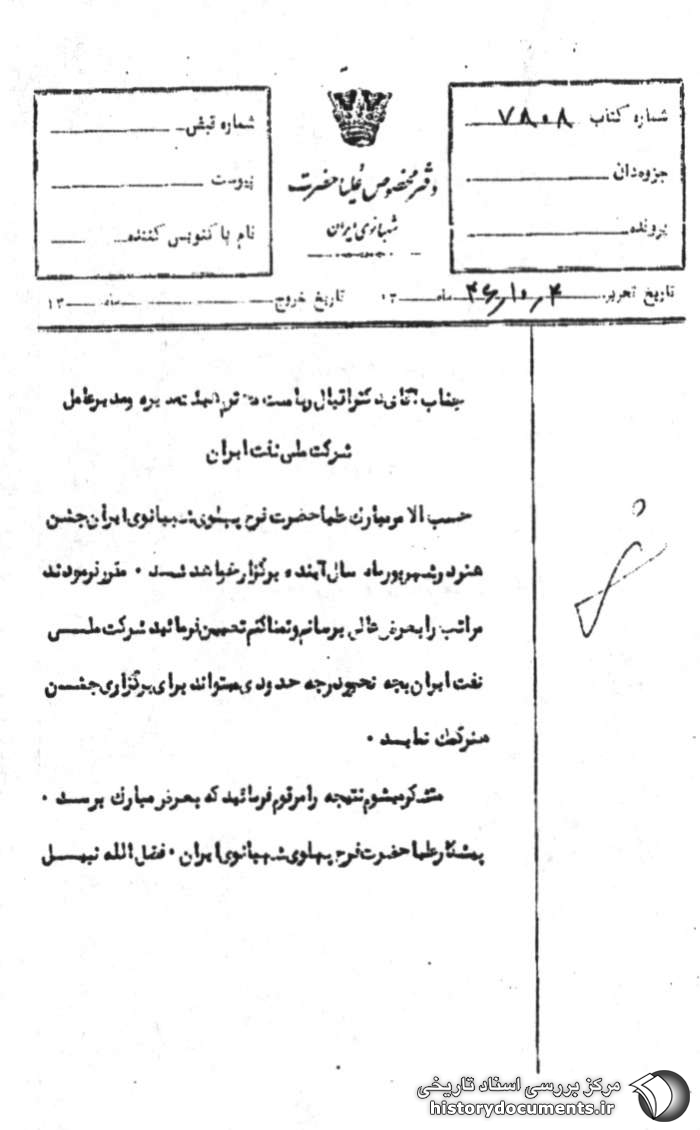 شماره کتاب ۷۸۰۸
جزوه‌دان
پرونده
دفتر مخصوص علیاحضرت
شهبانوی ایران
شماره قبض
پیوست
نام پاکنویس کننده
تاریخ تحریر ۴ ر ۱۰ ر ۴۶ ماه ۱۳ تاریخ خروج ماه ۱۳
جناب آقای دکتر اقبال ریاست محترم هیئت مدیره و مدیر عامل
شرکت ملی نفت ایران
حسب الامر مبارک علیاحضرت فرح پهلوی شهبانوی ایران جشن
هنر در شهریور ماه سال آینده برگزار خواهد شد ۰ مقرر فرمودند
مراتب را بعرض عالی برسانم و تمنا کنم تعیین فرمائید شرکت ملی
نفت ایران بچه نحو و درجه حدودی میتواند برای برگزاری جشن
هنر کمک نماید ۰
متشکر میشوم نتیجه را مرقوم فرمائید که بعرض مبارک برسد ۰
پیشکار علیاحضرت فرح پهلوی شهبانوی ایران ۰ فضل الله نبیل
مرکز بررسی اسناد تاریخی
historydocuments.ir